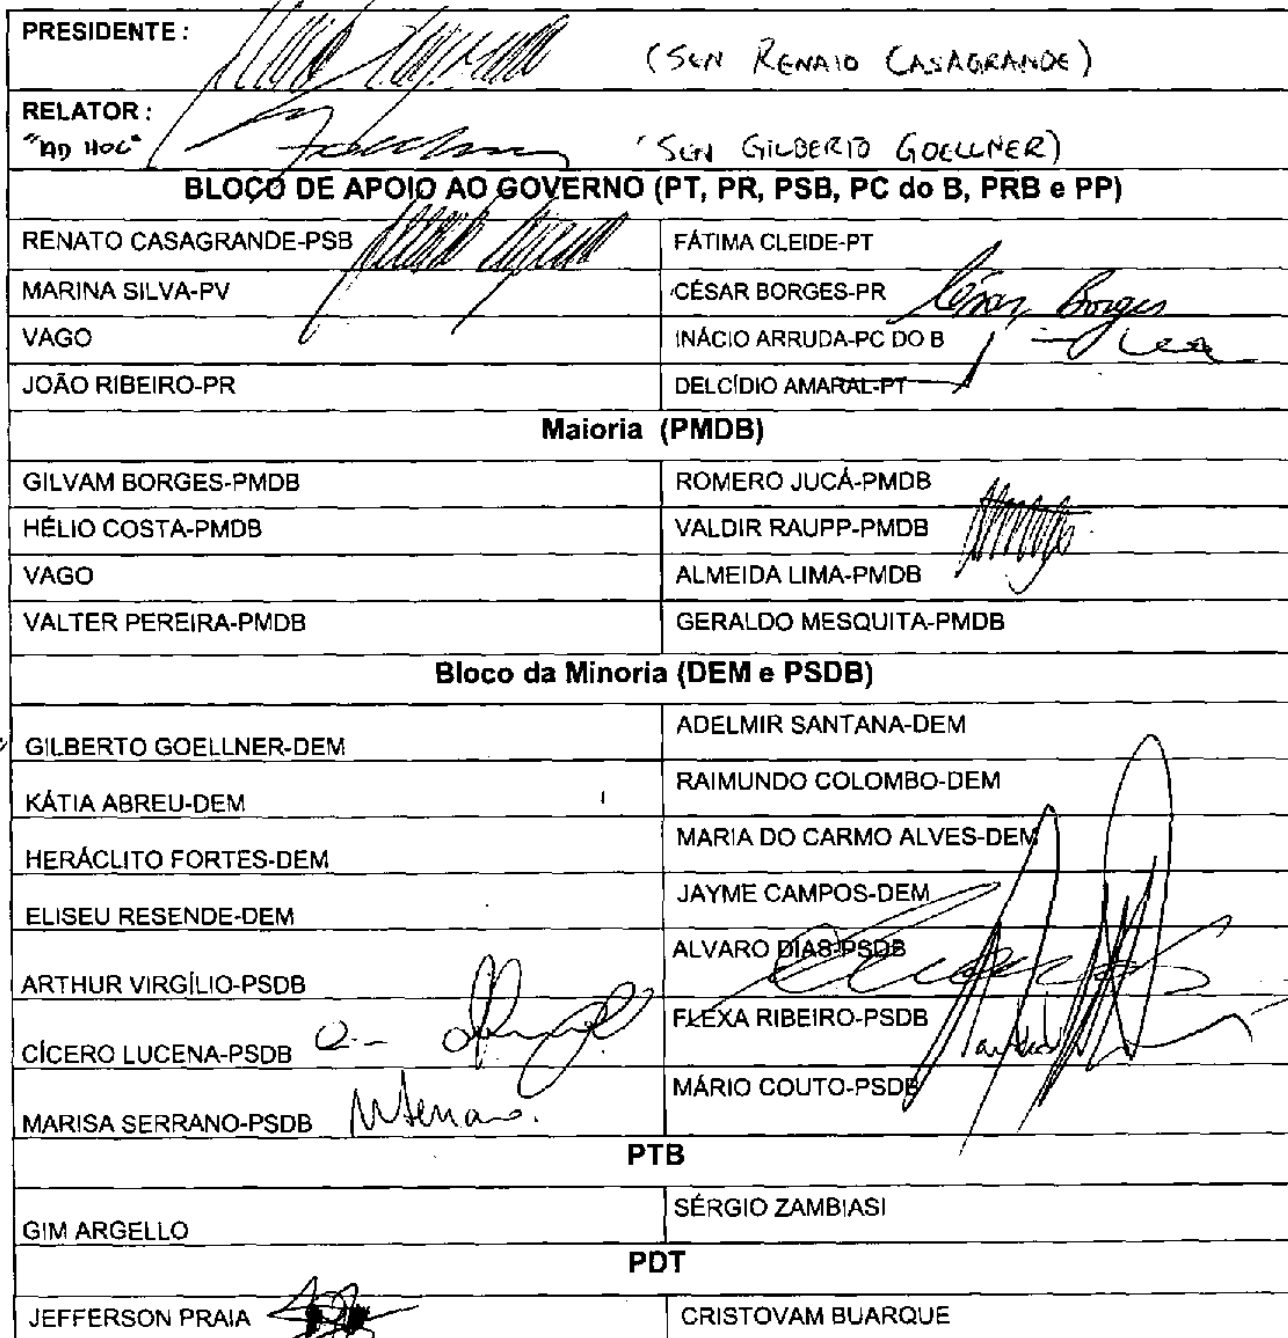 PRESIDENTE :
(SEN RENATO CASAGRANDE)
RELATOR :
"AD HOC"
(SEN GILBERTO GOELLNER)
BLOCO DE APOIO AO GOVERNO (PT, PR, PSB, PC do B, PRB e PP)
RENATO CASAGRANDE-PSB
FÁTIMA CLEIDE-PT
MARINA SILVA-PV
CÉSAR BORGES-PR César Borges
VAGO
INÁCIO ARRUDA-PC DO B
JOÃO RIBEIRO-PR
DELCÍDIO AMARAL-PT
Maioria (PMDB)
GILVAM BORGES-PMDB
ROMERO JUCÁ-PMDB
HÉLIO COSTA-PMDB
VALDIR RAUPP-PMDB
VAGO
ALMEIDA LIMA-PMDB
VALTER PEREIRA-PMDB
GERALDO MESQUITA-PMDB
Bloco da Minoria (DEM e PSDB)
GILBERTO GOELLNER-DEM
ADELMIR SANTANA-DEM
KÁTIA ABREU-DEM
RAIMUNDO COLOMBO-DEM
HERÁCLITO FORTES-DEM
MARIA DO CARMO ALVES-DEM
ELISEU RESENDE-DEM
JAYME CAMPOS-DEM
ARTHUR VIRGÍLIO-PSDB
ALVARO DIAS-PSDB
CÍCERO LUCENA-PSDB
FLEXA RIBEIRO-PSDB
MARISA SERRANO-PSDB MSerrano.
MÁRIO COUTO-PSDB
PTB
GIM ARGELLO
SÉRGIO ZAMBIASI
PDT
JEFFERSON PRAIA
CRISTOVAM BUARQUE